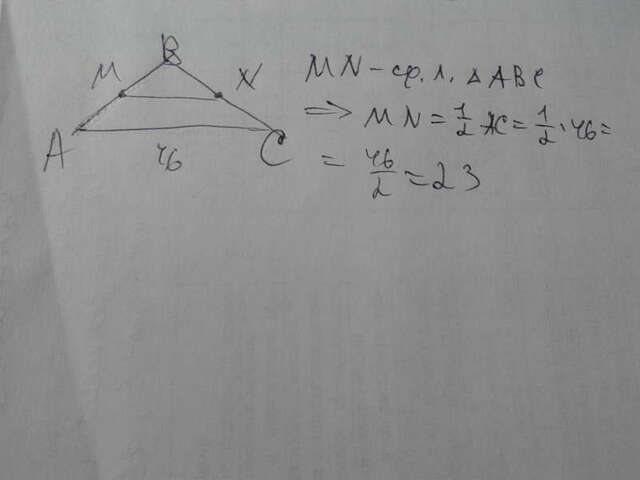 B
M N
A C
46
MN - ср. л. △ABC
⇒ MN = 1/2 AC = 1/2 · 46 =
= 46/2 = 23